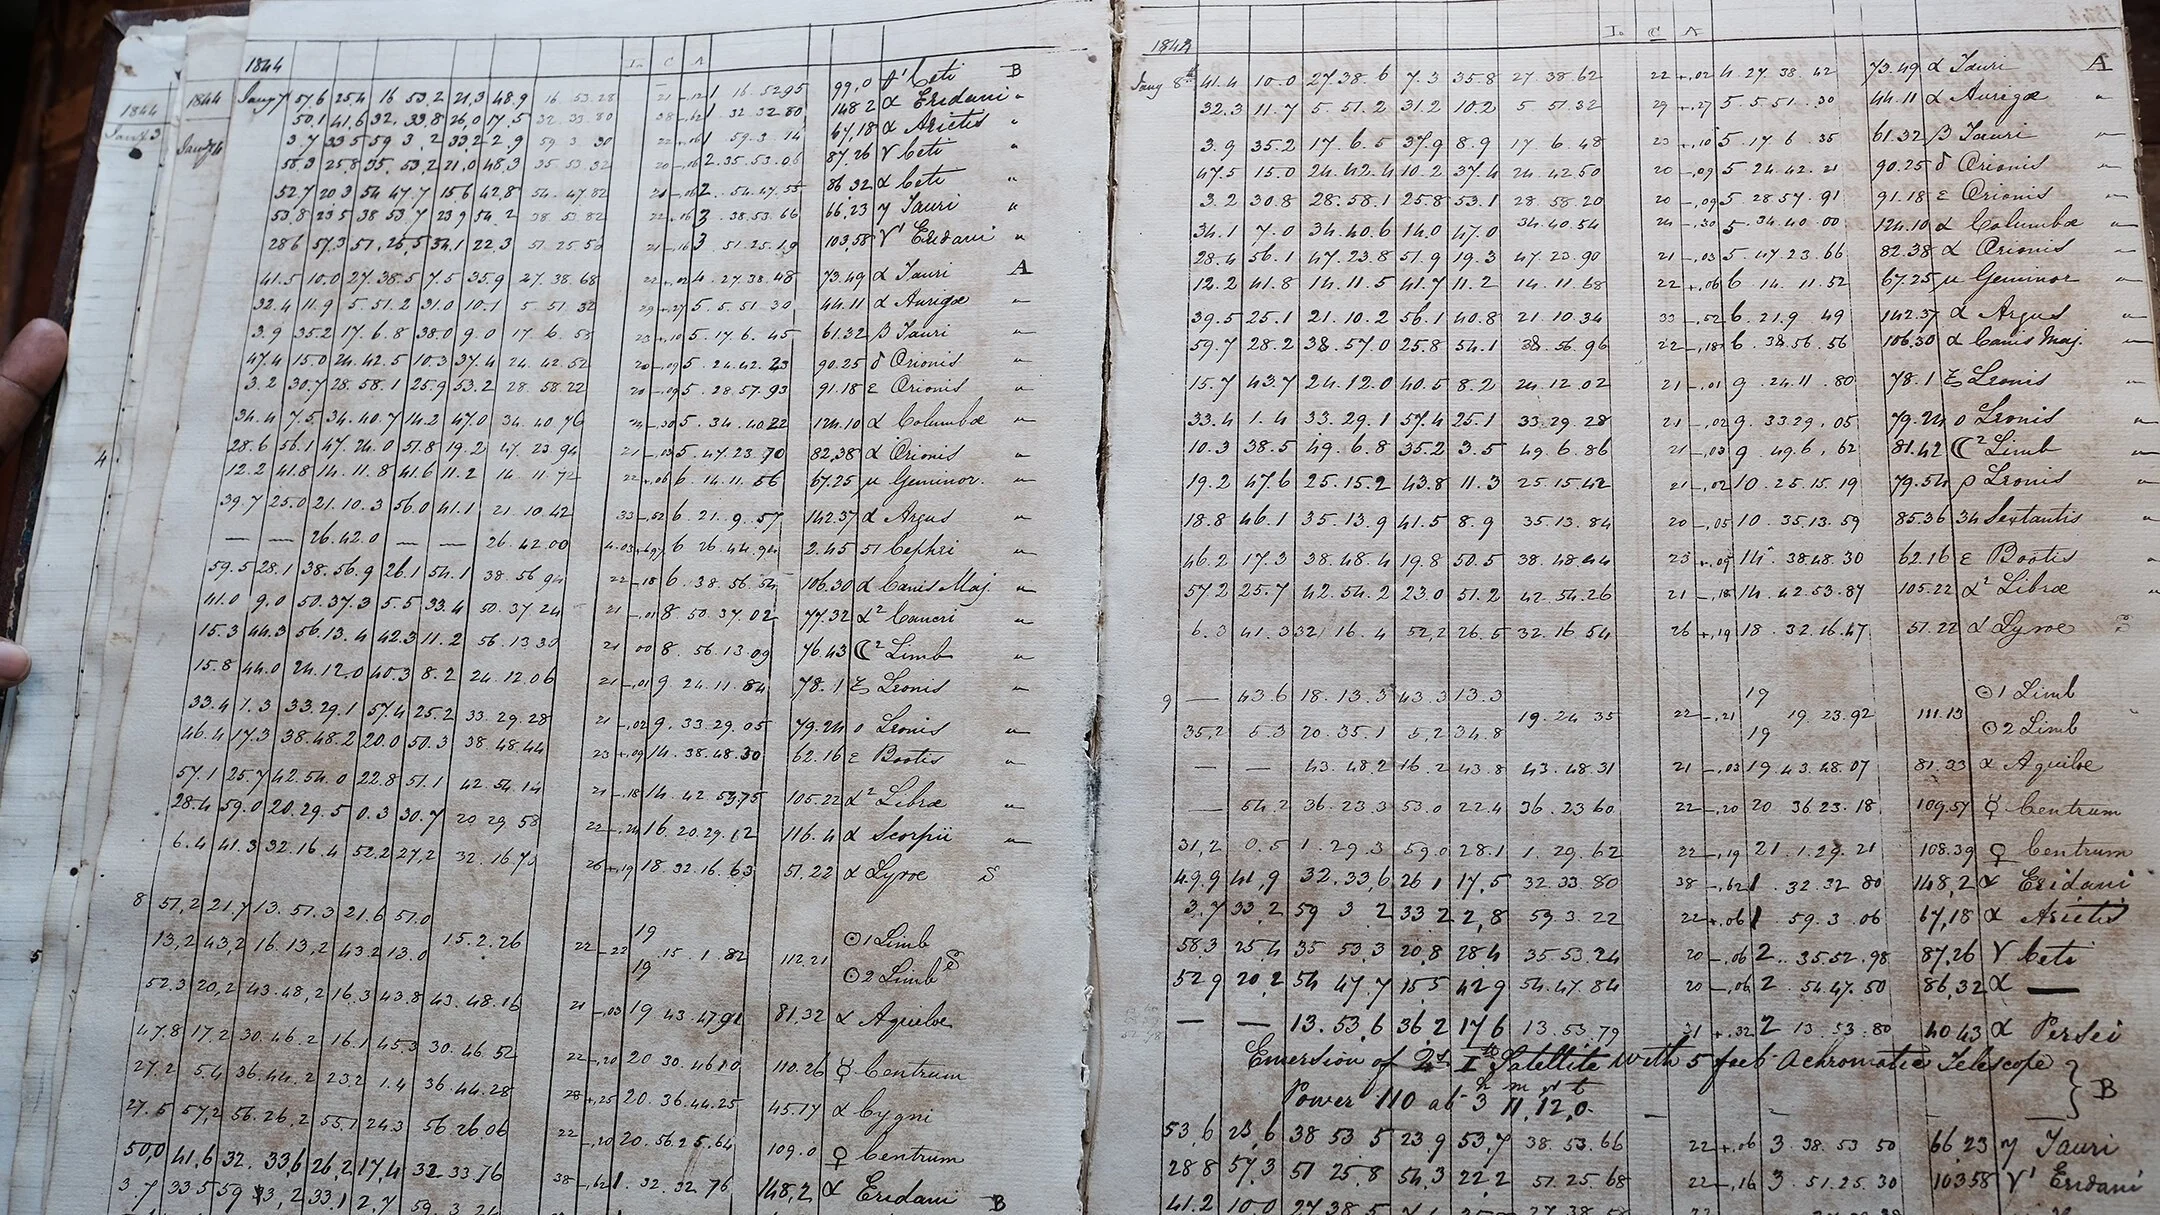 1844
I. C A
Jany 7 57,6 25,4 16 53,2 21,3 48,9 16 53.28 1 16.5295 99,0 Ceti B
50,1 41,6 32. 33,8 26,0 17,5 32 33 80 1 32 32 80 148 2 α Eridani "
3.7 33 5 59 3 , 2 33,2 2,9 59 3 30 1 59.3.14 67,18 α Arietis "
58,3 25,8 35. 53,2 21,0 48,3 35 53 32 20 -,06 2.35.53.06 87.26 γ Ceti "
52,7 20 3 54 47.7 15,6 42,8 54.47.82 2 .54.47.55 86 32 α Ceti "
53,8 23 5 38 53,7 23 9 54 2 38.53.82 22 +.06 3 .38.53.66 66,23 η Tauri "
28 6 57,3 51, 25,5 54,1 22,3 51.25.52 21 -,16 3 .51.25.19 103,58 γ' Eridani "
41.5 10.0 27.38.5 7.5 35.9 27.38.68 22 +.02 4 .27.38.48 73.49 α Tauri A
32.4 11.9 5.51.2 31.0 10.1 5.51.32 29 +.27 5.5.51.30 44.11 α Aurigæ "
3.9 35.2 17.6.8 38.0 9.0 17.6.58 23 +.10 5.17.6.45 61.32 β Tauri "
47.4 15.0 24.42.5 10.3 37.4 24.42.52 20 -.09 5.24.42.23 90.25 δ Orionis "
3.2 30.7 28.58.1 25.9 53.2 28.58.22 20 -.09 5.28.57.93 91.18 ε Orionis "
34.4 7.5 34.40.7 14.2 47.0 34.40.76 24 -.30 5.34.40.22 124.10 α Columbæ "
28.6 56.1 47.24.0 51.8 19.2 47.23.94 21 -.03 5.47.23.70 82,38 α Orionis "
12.2 41.8 14.11.8 41.6 11.2 14.11.72 22 +.06 6.14.11.56 67.25 μ Geminor. "
39.7 25.0 21.10.3 56.0 41.1 21.10.42 33 -.52 6.21.9.57 142.37 α Argus "
— — 26.42.0 — — 26.42.00 6 26.44.94 2.45 51 Cephei "
59.5 28.1 38.56.9 26.1 54.1 38.56.94 22 -.18 6.38.56.54 106.30 α Canis Maj. "
41.0 9.0 50.37.3 5.5 33.4 50.37.24 21 -.01 8.50.37.02 77.32 α² Cancri "
15.3 44.3 56.13.4 42.3 11.2 56.13.30 21 00 8.56.13.09 76.43 ☾² Limb "
15.8 44.0 24.12.0 40.3 8.2 24.12.06 21 -.01 9.24.11.84 78.1 ξ Leonis "
33.4 1.3 33.29.1 57.4 25.2 33.29.28 21 -.02 9.33.29.05 79.24 o Leonis "
46.4 17.3 38.48.2 20.0 50.3 38.48.44 23 +.09 14.38.48.30 62.16 ε Bootis "
57.1 25.7 42.54.0 22.8 51.1 42.54.14 21 -.18 14.42.53.75 105.22 α² Libræ "
28.4 59.0 20.29.5 0.3 30.7 20.29.58 22 -.24 16.20.29.12 116.4 α Scorpii "
6.4 41.3 32.16.4 52.2 27,2 32.16.70 26 +.19 18.32.16.63 51.22 α Lyræ S
8 57,2 21.7 13.51.3 21.6 51.0 19 ☉1 Limb
15.2.26 22 -.22 .15.1.82 112.21
13,2 43,2 16.13,2 43.2 13.0 19 ☉2 Limb
52.3 20,2 43.48,2 16.3 43.8 43.48.16 21 -.03 19 43.47.91 81,32 α Aquilæ
47.8 17.2 30.46.2 16.1 45.3 30.46.52 22 -.20 20 30.46.10 110.26 ☿ Centrum
27.2 5.4 36.44.2 23.2 1.4 36.44.28 28 +.25 20.36.44.25 45.17 α Cygni
27.5 57,2 56.26,2 55.1 24.3 56.26.06 22 -.20 20.56.25.64 109.0 ♀ Centrum
50,0 41,6 32. 33,6 26,2 17,4 32 33.76 38 -.62 1 . 32.32 76 148,2 α Eridani B
3.7 33.5 59 3,2 33.1 2,7 59.3.24
1844
Jany 3
1844
Jany 4
4
5
1844
I. C A
Jany 8th 41.4 10.0 27.38.6 7.3 35.8 27.38.62 22 +.02 4.27.38.42 73.49 α Tauri A
32.3 11.7 5.51.2 31.2 10.2 5.51.32 29 +.27 5.5.51.30 44.11 α Aurigæ "
3.9 35.2 17.6.5 37.9 8.9 17.6.48 23 +.10 5.17.6.35 61.32 β Tauri "
47.5 15.0 24.42.4 10.2 37.4 24.42.50 20 -.09 5.24.42.21 90.25 δ Orionis "
3.2 30.8 28.58.1 25.8 53.1 28.58.20 20 -.09 5.28.57.91 91.18 ε Orionis "
34.1 7.0 34.40.6 14.0 47.0 34.40.54 24 -.30 5.34.40.00 124.10 α Columbæ "
28.4 56.1 47.23.8 51.9 19.3 47.23.90 21 -.03 5.47.23.66 82.38 α Orionis "
12.2 41.8 14.11.5 41.7 11.2 14.11.68 22 +.06 6.14.11.52 67.25 μ Geminor "
39.5 25.1 21.10.2 56.1 40.8 21.10.34 33 -.52 6.21.9.49 142.37 α Argus "
59.7 28.2 38.57.0 25.8 54.1 38.56.96 22 -.18 6.38.56.56 106.30 α Canis Maj. "
15.7 43.7 24.12.0 40.5 8.2 24.12.02 21 -.01 9.24.11.80 78.1 ξ Leonis "
33.4 1.4 33.29.1 57.4 25.1 33.29.28 21 -.02 9.33.29.05 79.24 o Leonis "
10.3 38.5 49.6.8 35.2 3.5 49.6.86 21 -.03 9.49.6.62 81.42 ☾² Limb "
19.2 47.6 25.15.2 43.8 11.3 25.15.42 21 -.02 10.25.15.19 79.54 ρ Leonis "
18.8 46.1 35.13.9 41.5 8.9 35.13.84 20 -.05 10.35.13.59 85.36 34 Sextantis "
46.2 17.3 38.48.4 19.8 50.5 38.48.44 23 +.09 14.38.48.30 62.16 ε Bootis "
57.2 25.7 42.54.2 23.0 51.2 42.54.26 21 -.18 14.42.53.87 105.22 α² Libræ "
6.3 41.3 32 16.4 52,2 26.5 32.16 54 26 +.19 18.32.16.47 51.22 α Lyræ
9 — 43.6 18.13.3 43.3 13.3 19 ☉1 Limb
19.24 35 22 -.21 19.23.92 111.13
35,2 5.3 20.35.1 5,2 34.8 19 ☉2 Limb
— — 43.48.2 16.2 43.8 43.48.31 21 -.03 19.43.48.07 81.33 α Aquilæ
— 54.2 36.23.3 53.0 22.4 36.23 60 22 -.20 20 36 23.18 109.57 ☿ Centrum
31,2 0.5 1.29.3 59.0 28.1 1.29.62 22 -.19 21.1.29.21 108.39 ♀ Centrum
49.9 41,9 32.33,6 26 1 17,5 32 33.80 38 -.62 1 .32.32 80 148,2 α Eridani
3.7 33,2 59 3 2 33 2 2,8 59.3.22 22 +.06 1 59.3.06 67,18 α Arietis
58.3 25 4 35 53,3 20,8 28 4 35.53.24 20 -.06 2..35.52.98 87,26 γ Ceti
52 9 20,2 54 47.7 15 5 42 9 54.47.84 20 -.06 2 54.47.50 86,32 α —
— — 13.53,6 36,2 17 6 13.53,79 31 +.32 2 13.53.80 40 43 α Persei
Emersion of ♃s Ist Satellite with 5 feet Achromatic Telescope
Power 110 at 3 11,12,0. B
53,6 23,6 38 53 5 23,9 53,7 38.53.66 22 +.06 3.38.53 50 66,23 η Tauri
28 8 57,3 51 25,8 54,3 22,2 51.25.68 22 -.16 3.51.25.30 103 58 γ' Eridani
41.2 10.0 27 38 5